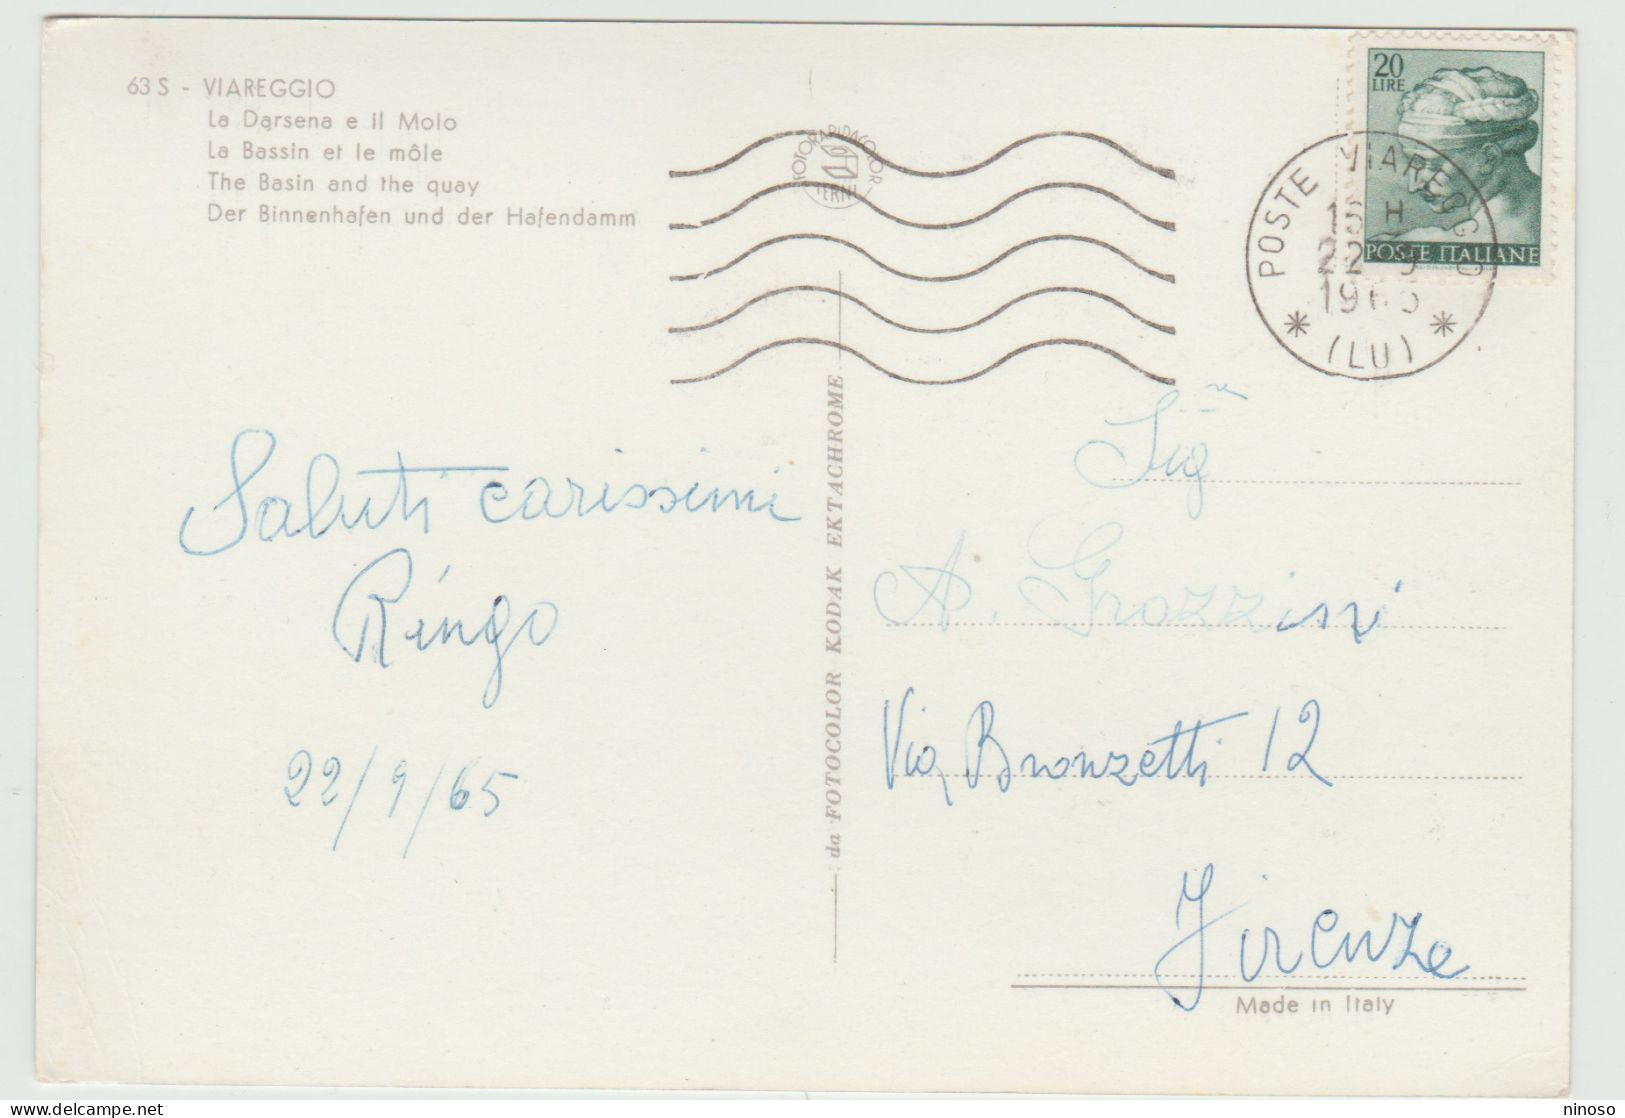 63 S - VIAREGGIO
La Darsena e il Molo
La Bassin et le môle
The Basin and the quay
Der Binnenhafen und der Hafendamm
FOTORAPIDACOLOR
TERNI
20
LIRE
POSTE ITALIANE
POSTE VIAREGGIO
H
22 9
1965
(LU)
da FOTOCOLOR KODAK EKTACHROME
Saluti carissimi
Ringo
22/9/65
Sig
A. Grazzini
Via Bronzetti 12
Firenze
Made in Italy
delcampe.net
ninoso